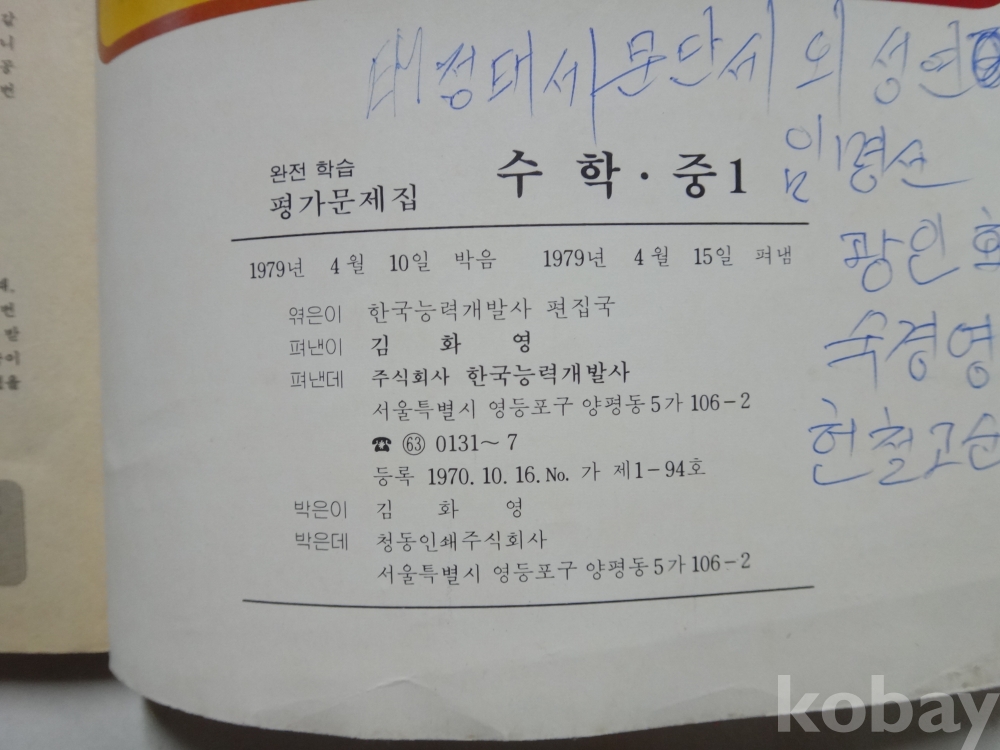 태정태세문단세 외 성연
임명선
광인효
숙경영
헌철고순
완전 학습
평가문제집
수학·중1
1979년 4월 10일 박음 1979년 4월 15일 펴냄
엮은이 한국능력개발사 편집국
펴낸이 김화영
펴낸데 주식회사 한국능력개발사
서울특별시 영등포구 양평동5가 106-2
☎ ㊿+13 0131~7
등록 1970. 10. 16. No. 가 제1-94호
박은이 김화영
박은데 청동인쇄주식회사
서울특별시 영등포구 양평동5가 106-2
kobay